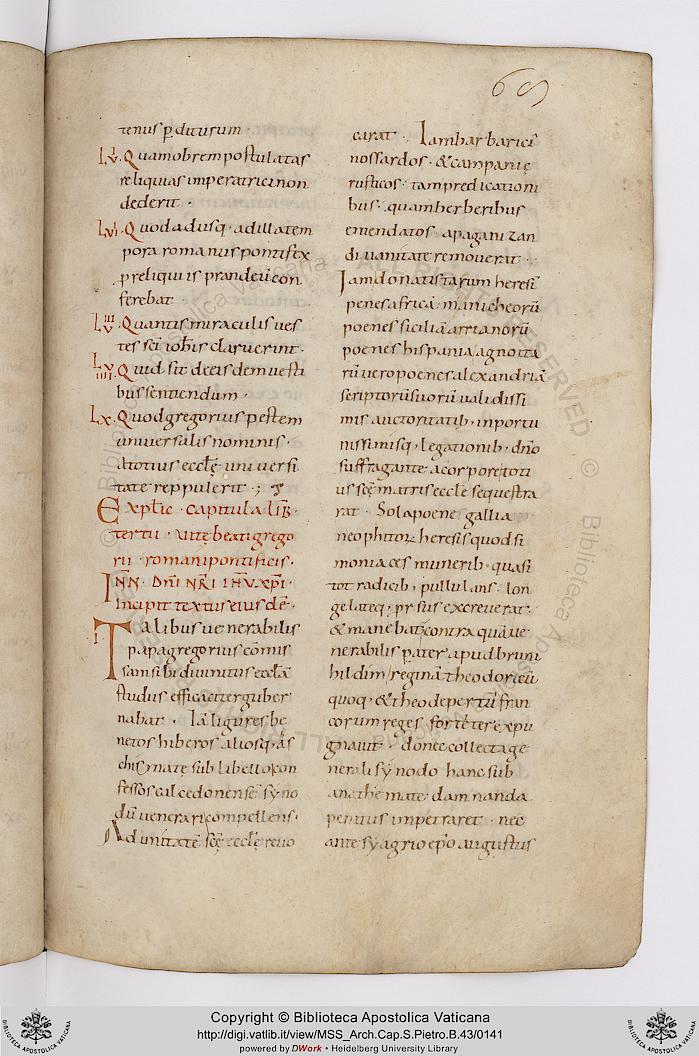 69
tenus pditurum ·
LV · Quamobrem postulatas
reliquias imperatrici non
dederit ·
LVI · Quod adusq · ad illa tem
pora romanus pontifex
p reliquiis prandeũ con
ferebat
LVIII · Quantis miraculis ves
tes sci iohis claruerint ·
LVIIII · Quid sit de eisdem vesti
bus sentiendum ·
LX · Quod gregorius pestem
universalis nominis ·
a totius eccłę universi
tate reppulerit ;
Explic · capitula lib
tertii · vitę beati grego
rii · romani pontificis ·
INN · DNI NRI IHV XPI ·
Incipit textus eiusdẽ ·
I · Talibus venerabilis
papa gregorius cõmis
sam sibi divinitus ecclã
studiis efficaciter guber
nabat · Iã ligures be
netos hiberos aliosq · a s
chismate sub libello con
fessos calcedonensẽ syno
dũ venerari compellens ·
Ad unitatẽ scę ecclę revo
carat · Iam barbaricĩ
nos sardos · & campanię
rusticos · tam predicationi
bus · quam verberibus
emendatos · a paganizan
di vanitate removerat ·
Iam donatistarum heresĩ
penes africã · manicheorũ
poenes siciliã arrianorũ
poenes hispania, agnoita
rũ vero poenes alexandriã
scriptorũ suorũ validissi
mis auctoritatib · inportu
nissimisq · legationib · dño
suffragante a corpore toti
us scę matris ecclę sequestra
rat · Sola poene gallia
neophitorum heresis quod si
moniaces munerib · quasi
tot radicib · pullulans · lon
ge lateq; prorsus excreverat ·
& manebat, contra quã ve
nerabilis pater apud bruni
hildim reginã theodoricũ
quoq · & theodepertũ fran
corum reges fortiter expu
gnavit · donec collecta ge
nerali synodo hanc sub
anathemate damnanda
penitus impetraret · nec
ante syagrio epo augustus
Bibliotheca Apostolica Vaticana © ALL RIGHTS RESERVED ©
Copyright © Biblioteca Apostolica Vaticana
http://digi.vatlib.it/view/MSS_Arch.Cap.S.Pietro.B.43/0141
powered by DWork • Heidelberg University Library
BIBLIOTECA APOSTOLICA VATICANA
BIBLIOTECA APOSTOLICA VATICANA